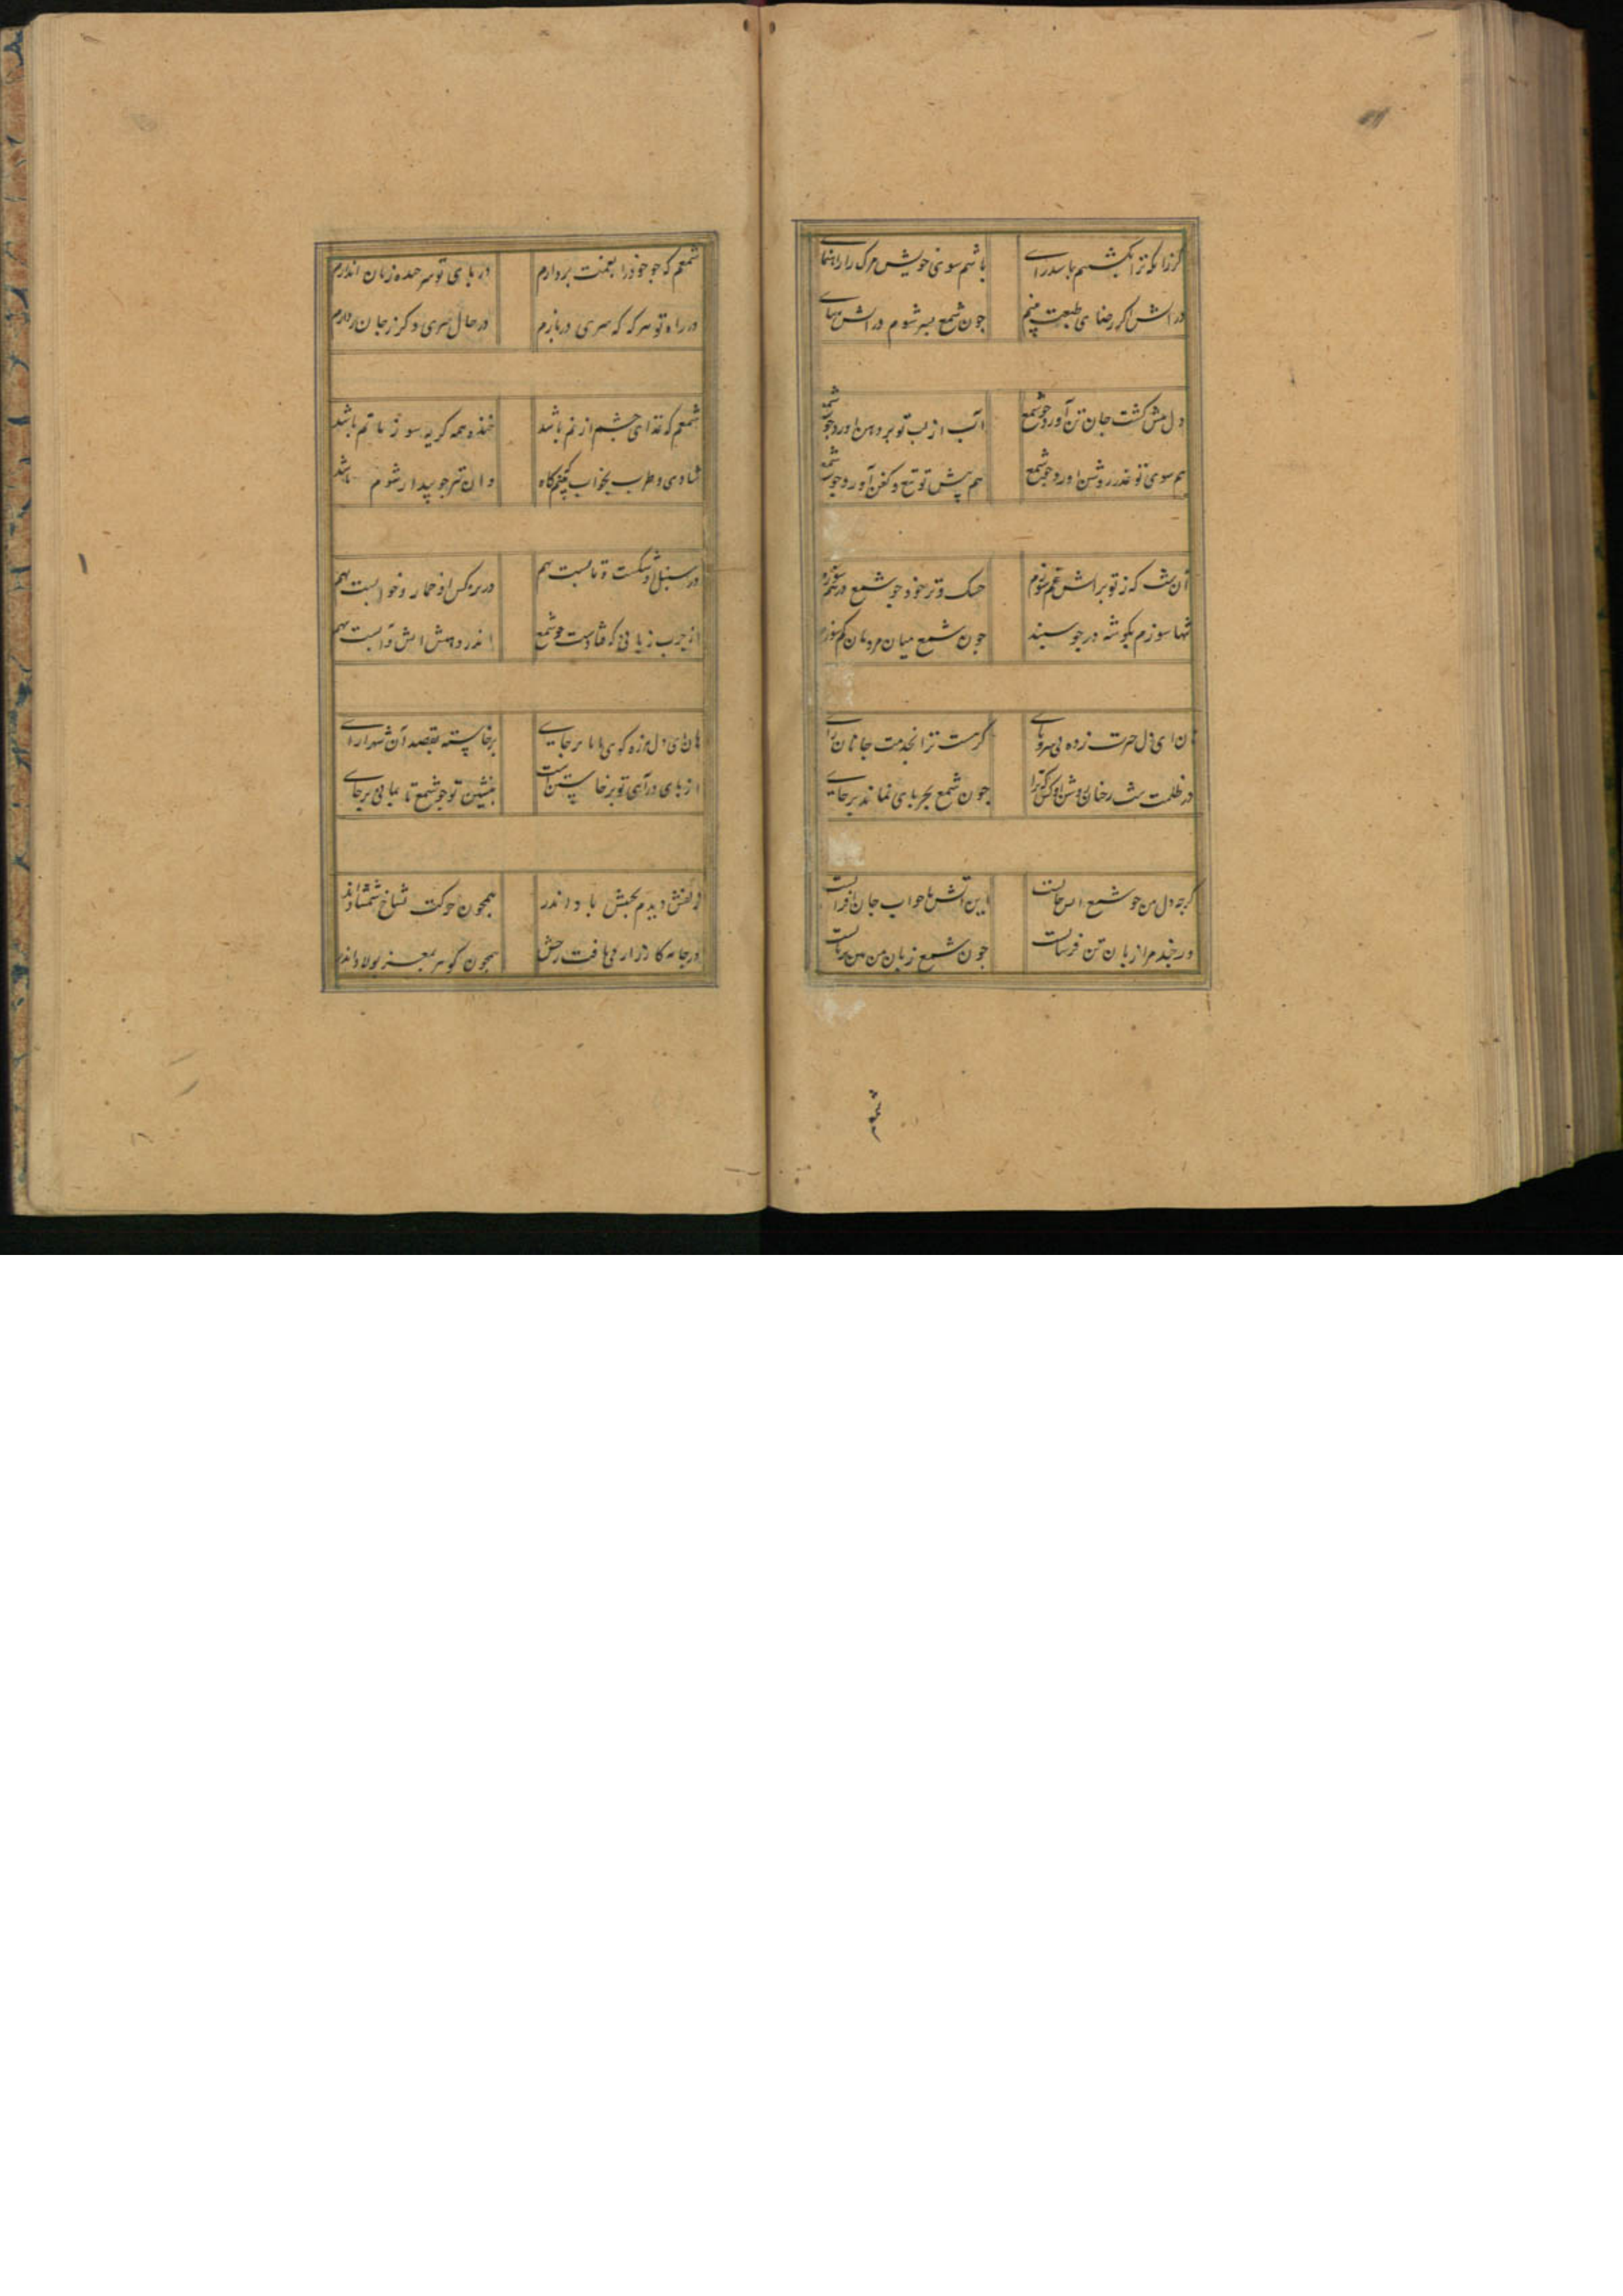 کرزانکه ترا بکشیم باسد رای باشم سوی خویش مرک را راهنمای
در اتش اکر رضای طبعت بینم جون شمع بسر شوم در اتش
دل پیش کشت جان تن آورد جو شمع آتب از لب تو بر دهن اورد جو شمع
هم سوی تو عذر روشن اورد جو شمع هم پیش تو تیغ و کفن آورد جو شمع
آن شب که ز تو بر اتش غم سوزم خشک و تر خود جو شمع در هم سوزم
تنها سوزم بکوشه در جو سپند جون شمع میان مردمان کم سوزم
هان ای دل حسرت زده بی سر و پای کر هست ترا بخدمت جانان رای
در ظلمت شب رخان روشن جون شمع بجز پای نماند بر جای
کرجه دل من جو شمع این اتش ها جواب جان
ور خنده مرا زیان تن جون شمع زبان من
شمعم که جو خود را بعنت بردارم در پای تو سر حده زبان اندارم
در راه تو هر که که سری دربازم در حال سری دکر ز جان بردارم
شمعم که غذای جشم از نم باشد خنده همه کریه سوز ماتم باشد
شادی و طرب بخواب بینم کاه وان نیز جو بیدار شوم باشد
در سنبل او شکست و تابست بهم در نرکس او خمار و خوابست بهم
از جرب زبانی که فتادست جو شمع اندر دهنش اتش و آبست بهم
هان ای دل هرزه کوی نا پا بر جای برخاسته بقصد آن شهرارای
از پای درآی تو برخاستن است بنشین تو جو شمع تا بمانی بر جای
زلفش دیدم بجنبش باد اندر همجون حرکت شاخ شمشاد اندر
در جامه کارزار می تافت رخش همجون کوهر بمغز بولاد اندر
شمعم